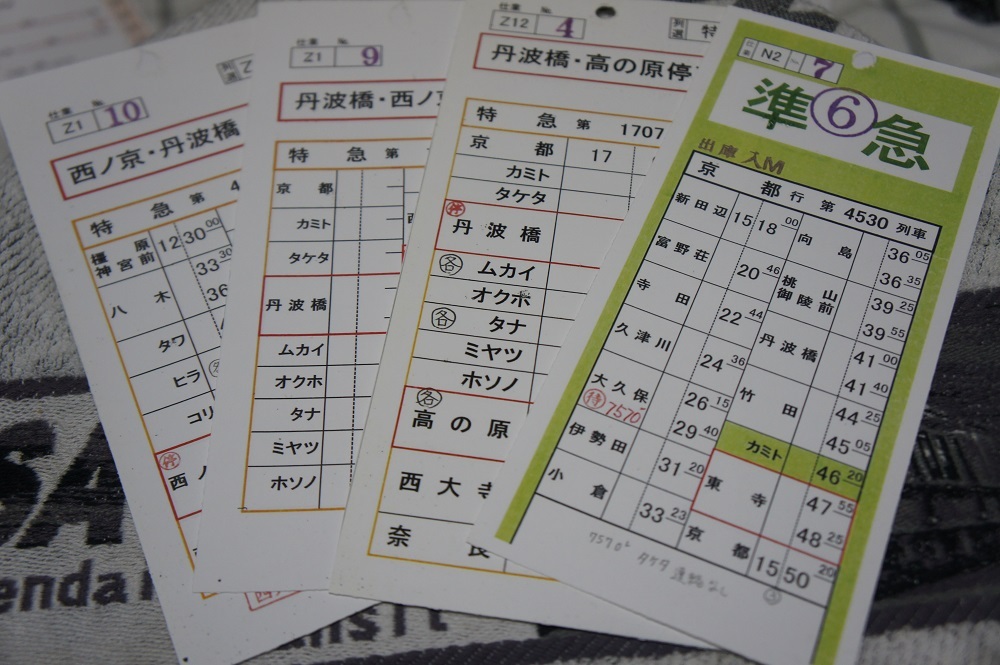 仕業 №
Z1 10
西ノ京・丹波橋
特 急 第 4
橿原神宮前 12 30 00
八 木 33 30
36
タワ
ヒラ
コリ
停
西ノ
仕業 №
Z1 9
丹波橋・西ノ
特 急 第
京 都
カミト
タケタ
丹波橋
ムカイ
オクホ
タナ
ミヤツ
ホソノ
仕業 №
Z12 4
列選 特
丹波橋・高の原停
特 急 第 1707
京 都 17
カミト
タケタ
停
丹波橋
各 ムカイ
オクホ
各 タナ
ミヤツ
ホソノ
各
高の原
西大寺
奈 良
仕業
N2 7
準⑥急
出庫 入M
京 都 行 第 4530 列車
新田辺 15 18 00
富野荘 20 46
寺 田 22 44
久津川 24 36
大久保 26 15
待 7570 29 40
伊勢田 31 20
小 倉 33 23
向 島 36 05
36 35
桃山御陵前 39 25
39 55
丹波橋 41 00
41 40
竹 田 44 25
45 05
カミト 46 20
東 寺 47 55
48 25
京 都 15 50 20
7570 タケタ 連絡なし